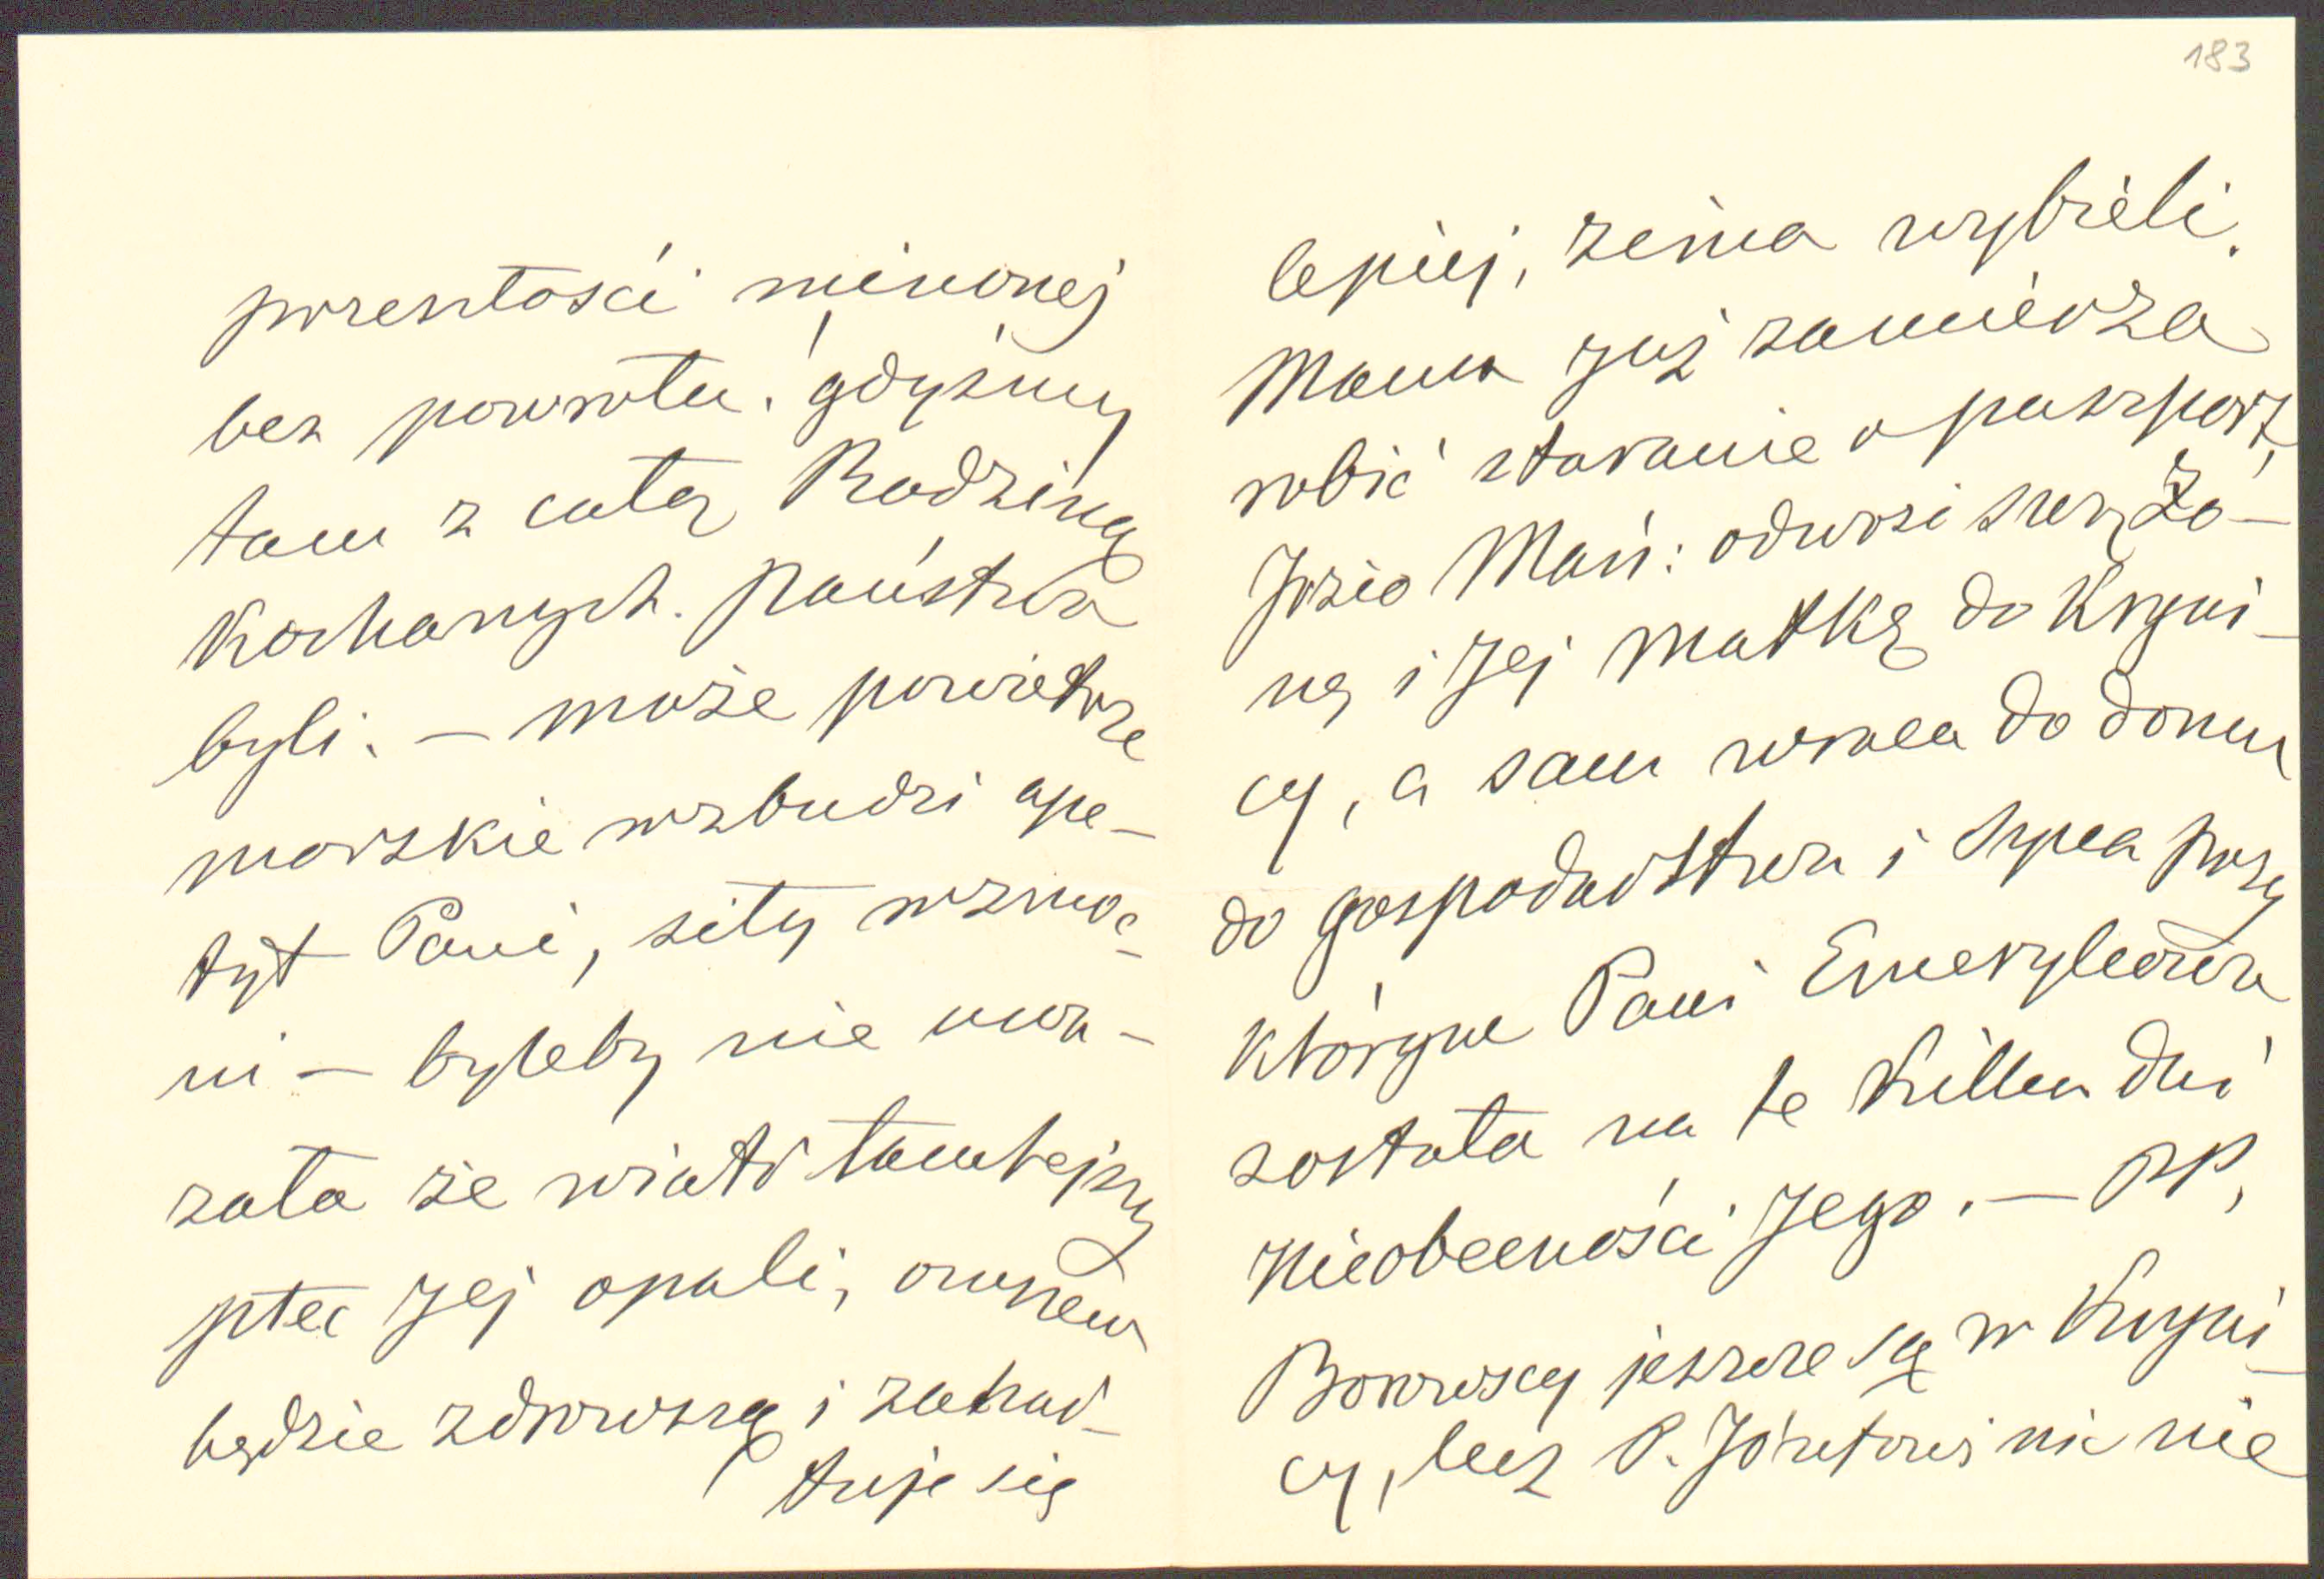 183
przeszłości minionej
bez powrotu! gdyśmy
tam z całą Rodziną
Kochanych. Państwa
byli. — może powietrze
morskie wzbudzi ape-
tyt Pani, siły wzmoc-
ni — byleby nie uwa-
żała że wiatr tamtejszy
płeć Jej opali, owszem
będzie zdrowszą i zahar-
tuje się
lepiej, zima wybieli.
Mama już zamierza
robić staranie o paszport,
Józio Mań: odwozi swą żo-
nę i Jej Matkę do Kryni-
cy, a sam wraca do domu
do gospodarstwa i Synca przy
którym Pani Emerylowa
została na te kilka dni
nieobecności Jego. — PP,
Borowscy jeszcze są w Kryni-
cy, lecz P. Józefowi nic nie